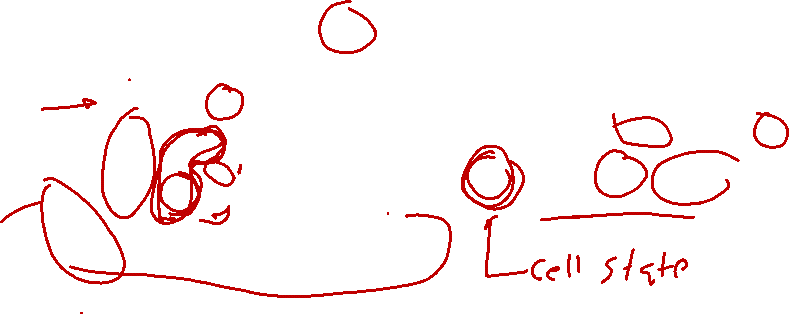 cell state